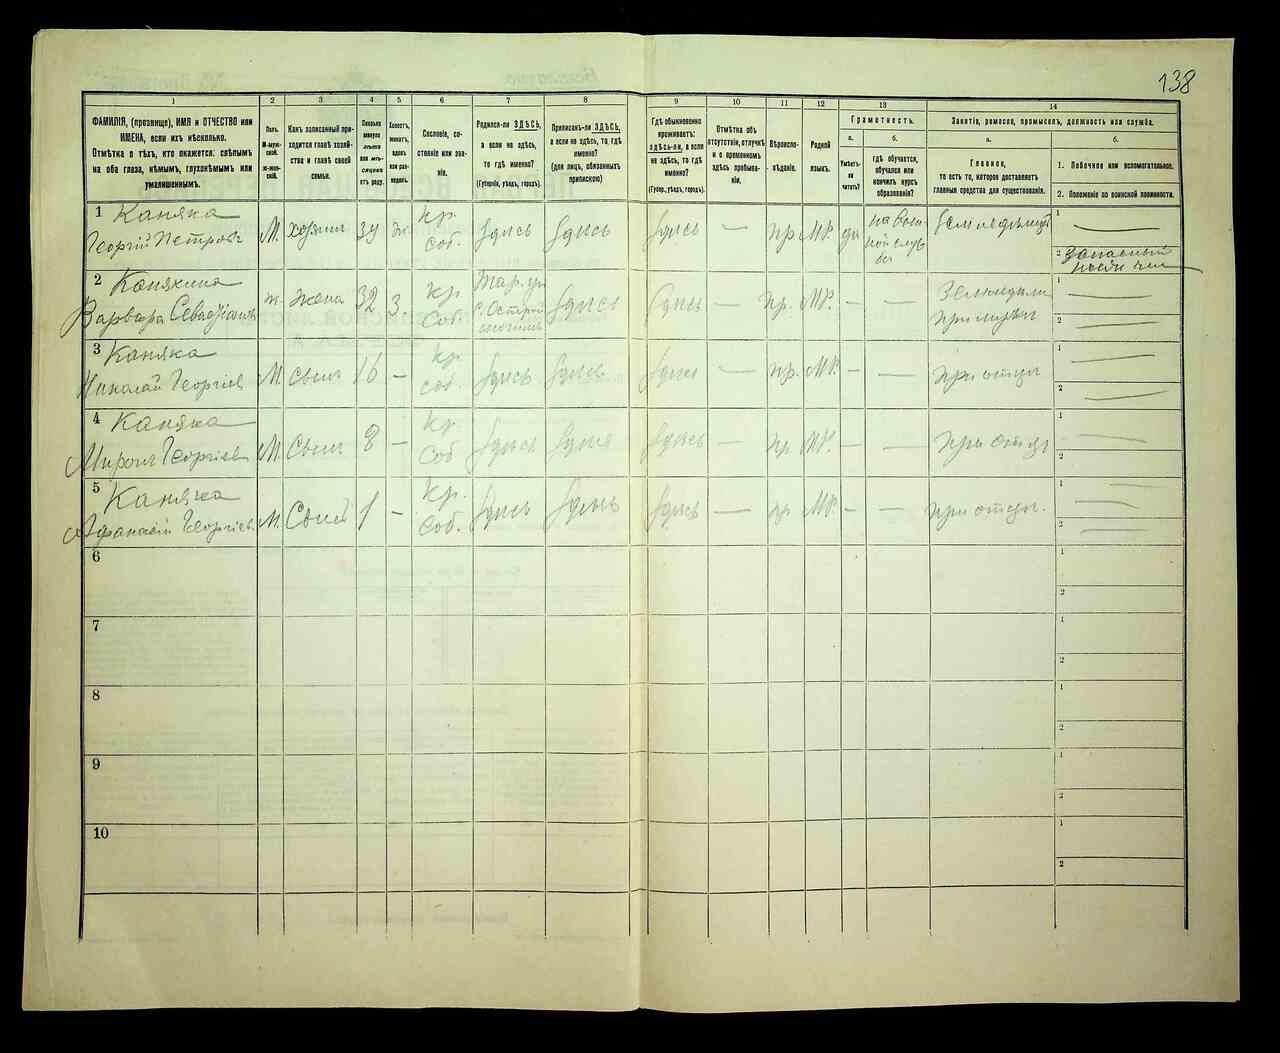 138
1
2
3
4
5
6
7
8
9
10
11
12
13
14
ФАМИЛІЯ, (прозвище), ИМЯ и ОТЧЕСТВО или
ИМЕНА, если ихъ нѣсколько.
Отмѣтка о тѣхъ, кто окажется: слѣпымъ
на оба глаза, нѣмымъ, глухонѣмымъ или
умалишеннымъ.
Полъ.
М-муж-
ской.
ж-жен-
скій.
Какъ записанный при-
ходится главѣ хозяй-
ства и главѣ своей
семьи.
Сколько
минуло
лѣтъ
или мѣ-
сяцевъ
отъ роду.
Холостъ,
женатъ,
вдовъ
или раз-
веденъ.
Сословіе, со-
стояніе или зва-
ніе.
Родился-ли ЗДѢСЬ,
а если не здѣсь,
то гдѣ именно?
(Губернія, уѣздъ, городъ).
Приписанъ-ли ЗДѢСЬ,
а если не здѣсь, то гдѣ
именно?
(для лицъ, обязанныхъ
припиской)
Гдѣ обыкновенно
проживаетъ:
здѣсь-ли, а если
не здѣсь, то гдѣ
именно?
(Губер., уѣздъ, городъ).
Отмѣтка объ
отсутствіи, отлучкѣ
и о временномъ
здѣсь пребыва-
ніи.
Вѣроиспо-
вѣданіе.
Родной
языкъ.
Грамотность.
а.
б.
Умѣетъ-
ли
читать?
гдѣ обучается,
обучался или
кончилъ курсъ
образованія?
Занятіе, ремесло, промыселъ, должность или служба.
а.
б.
Главное,
то есть то, которое доставляетъ
главныя средства для существованія.
1. Побочное или вспомогательное.
2. Положеніе по воинской повинности.
1 Каняка
Георгій Петровъ М. хозяинъ 39 ж. кр. соб. здѣсь здѣсь здѣсь — пр МР. да на воен-
ной служ
бѣ
1 —
2 Запасный
2 Канякина
Варвара ж. жена 32 з. кр. соб. здѣсь здѣсь — пр. МР. — —
1 —
2 —
3 Каняка
Николай Георгіев М. сынъ 16 — кр соб. здѣсь здѣсь здѣсь — пр. МР. — — при отцѣ
1 —
2 —
4 Каняка
Мирон Георгіев М. Сынъ 8 — кр соб здѣсь здѣсь здѣсь — пр МР. — — при отцѣ
1 —
2 —
5 Каняка
Афанасій Георгіев М. Сынъ 1 — кр. соб. здѣсь здѣсь здѣсь — пр МР. — — при отцѣ.
1 —
2 —
6
1
2
7
1
2
8
1
2
9
1
2
10
1
2